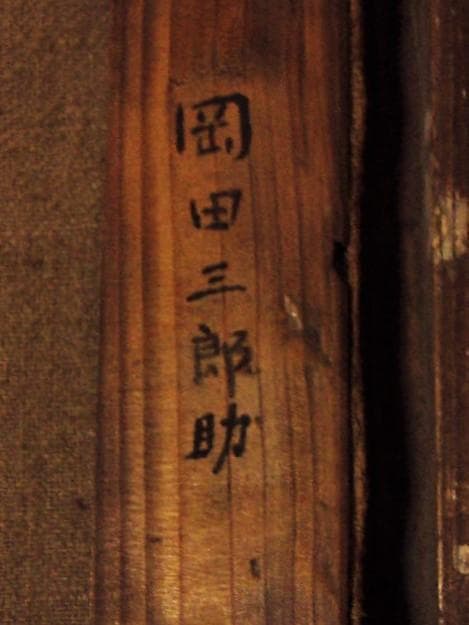 岡田三郎助